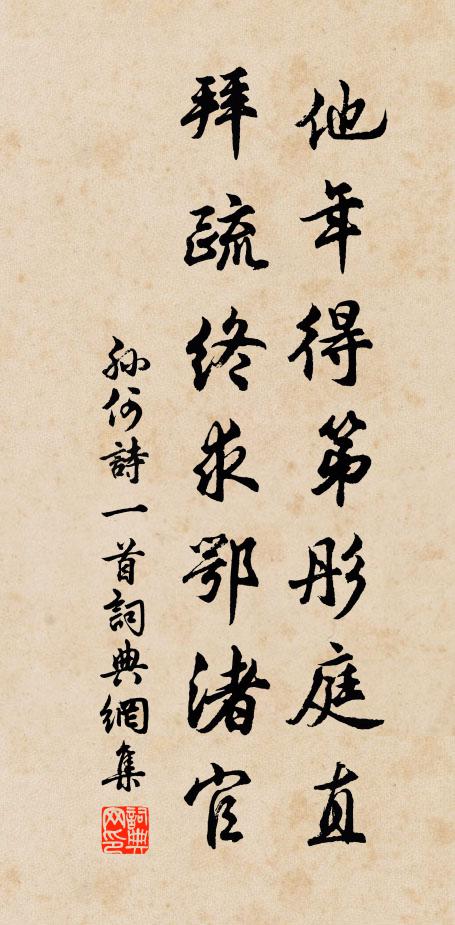 他年得第彤庭直
拜疏终求鄂渚官
孙何詩一首詞典網集
詞典網印